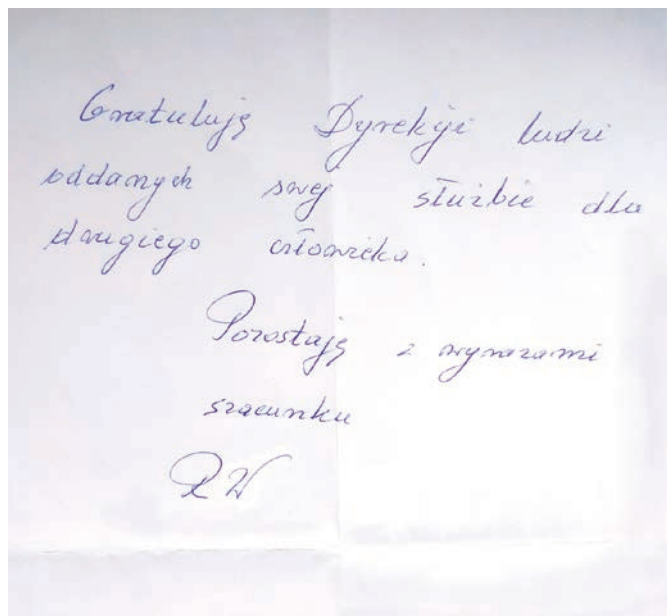 Gratuluję Dyrekcji ludzi
oddanych swej służbie dla
drugiego człowieka.
Pozostaję z wyrazami
szacunku
RW